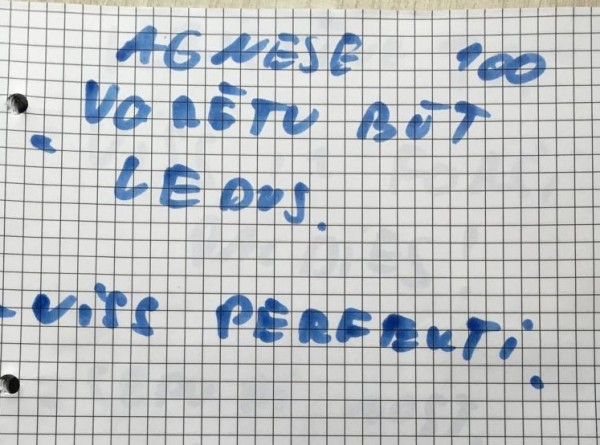 AGNESE 100
VARĒTU BŪT
- LEDUS.
- VISS PERFEKTI.